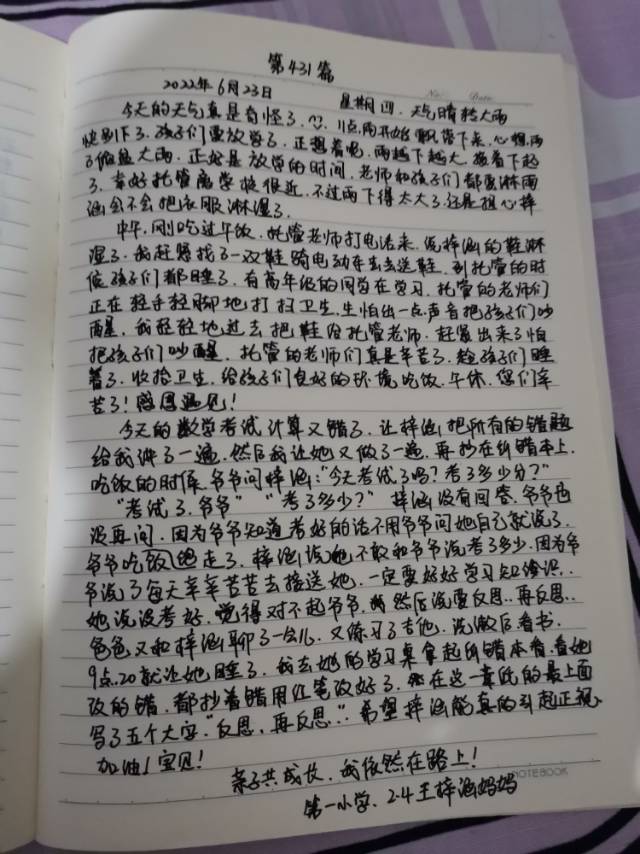 第431篇
No. Date
2022年6月23日 星期四 天气晴转大雨
今天的天气真是奇怪了,11点雨开始飘落下来,心想,雨
快别下了,孩子们要放学了,正想着呢,雨越下越大,接着下起
了倾盆大雨,正好是放学的时间,老师和孩子们都要淋雨
了,幸好托管离学校很近,不过雨下得太大了,还是担心梓
涵会不会把衣服淋湿了.
中午,刚吃过午饭,托管老师打电话来,说梓涵的鞋淋
湿了,我赶紧找了一双鞋骑电动车去送鞋,到托管的时
候孩子们都睡了,有高年级的同学在学习,托管的老师们
正在轻手轻脚地打扫卫生,生怕出一点声音把孩子们吵
醒,我轻轻地过去把鞋给托管老师,赶紧出来了怕
把孩子们吵醒,托管的老师们真是辛苦了,孩子们睡
着了,收拾卫生,给孩子们良好的环境吃饭,午休,您们辛
苦了!感恩遇见!
今天的数学考试计算又错了,让梓涵把所有的错题
给我讲了一遍,然后我让她又做了一遍,再抄在纠错本上,
吃饭的时候爷爷问梓涵:“今天考试了吗?考了多少分?”
“考试了,爷爷”“考了多少?”梓涵没有回答,爷爷也
没再问,因为爷爷知道考好的话不用爷爷问她自己就说了,
爷爷吃饭走了,梓涵说她不敢和爷爷说考了多少,因为爷
爷说了每天辛辛苦苦去接送她,一定要好好学习知识,
她说没考好,觉得对不起爷爷,然后说要反思,再反思,
爸爸又和梓涵聊了一会儿,又练习了吉他,洗漱后看书,
9点20就让她睡了,我去她的学习桌拿起纠错本看,看她
改的错,都抄着错用红笔改好了,在这一章纸的最上面
写了五个大字:“反思,再反思.”希望梓涵能真的引起正视,
加油!宝贝!
亲子共成长,我依然在路上!
NOTEBOOK
第一小学、2.4王梓涵妈妈